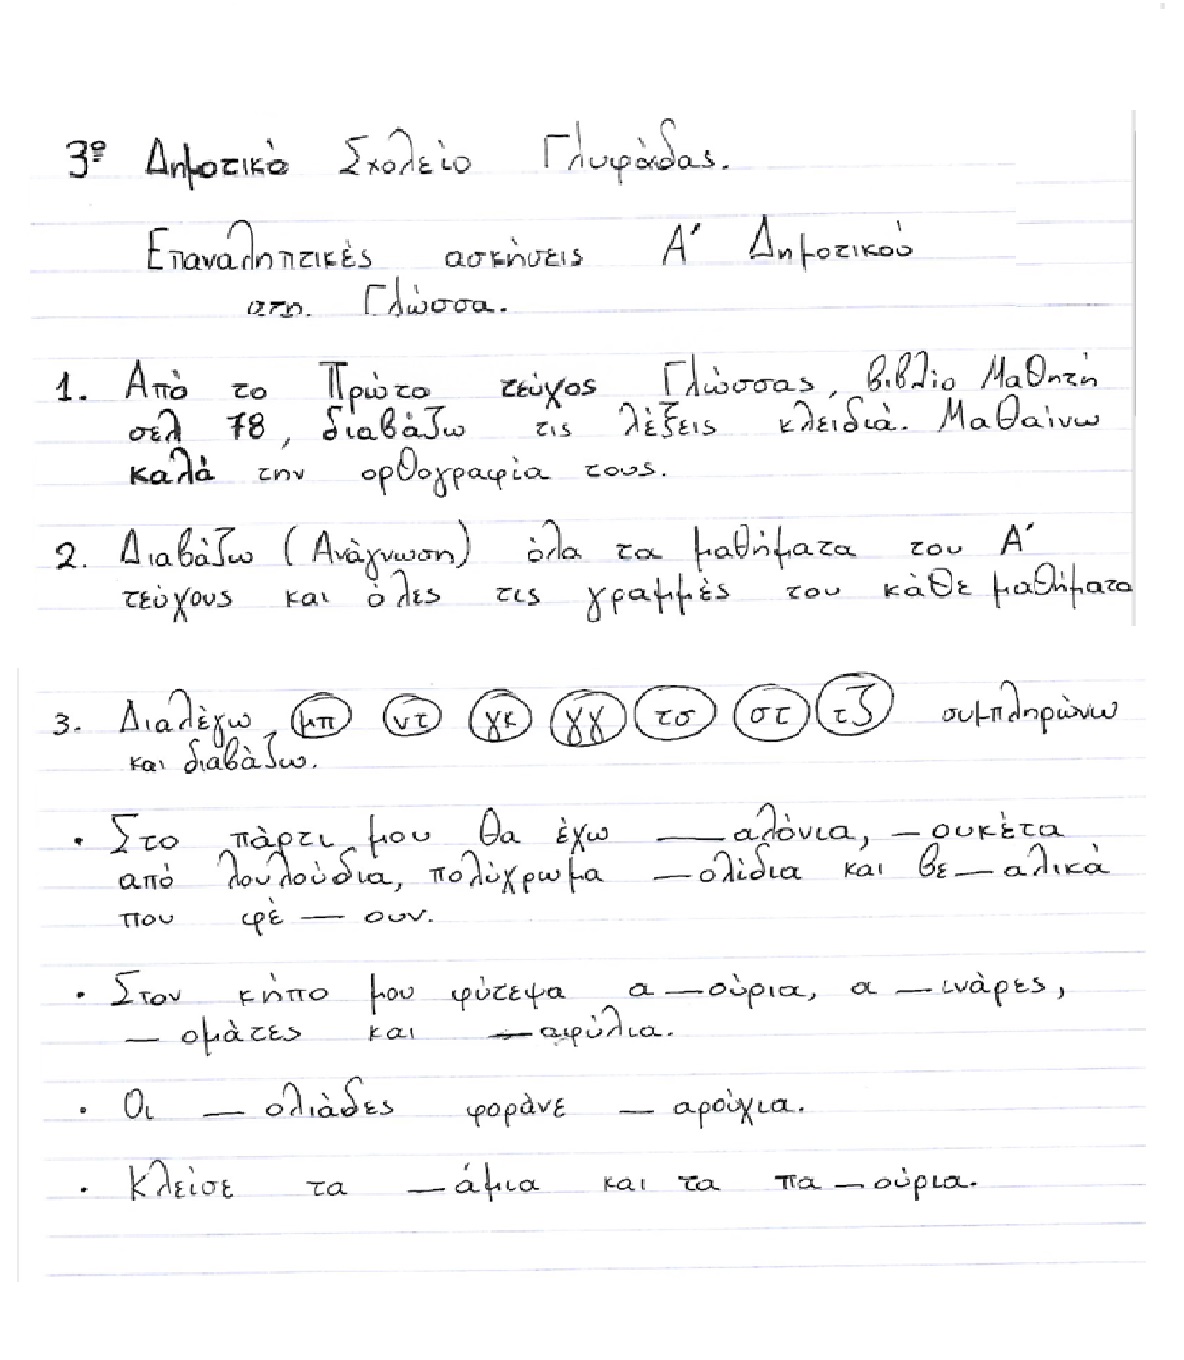 3º Δημοτικό Σχολείο Γλυφάδας.
Επαναληπτικές ασκήσεις Α΄ Δημοτικού
στη. Γλώσσα.
1. Από το Πρώτο τεύχος Γλώσσας, βιβλίο Μαθητή
σελ 78, διαβάζω τις λέξεις κλειδιά. Μαθαίνω
καλά την ορθογραφία τους.
2. Διαβάζω (Ανάγνωση) όλα τα μαθήματα του Α΄
τεύχους και όλες τις γραμμές του κάθε μαθήματο
3. Διαλέγω μπ ντ γκ γγ τσ στ τζ συμπληρώνω
και διαβάζω.
• Στο πάρτι μου θα έχω — αλόνια, — ουκέτα
από λουλούδια, πολύχρωμα — ολίδια και βε — αλικά
που φέ — ουν.
• Στον κήπο μου φύτεψα α — ούρια, α — ινάρες,
— ομάτες και — αφύλια.
• Οι — ολιάδες φοράνε — αρούχια.
• Κλείσε τα — άμια και τα πα — ούρια.